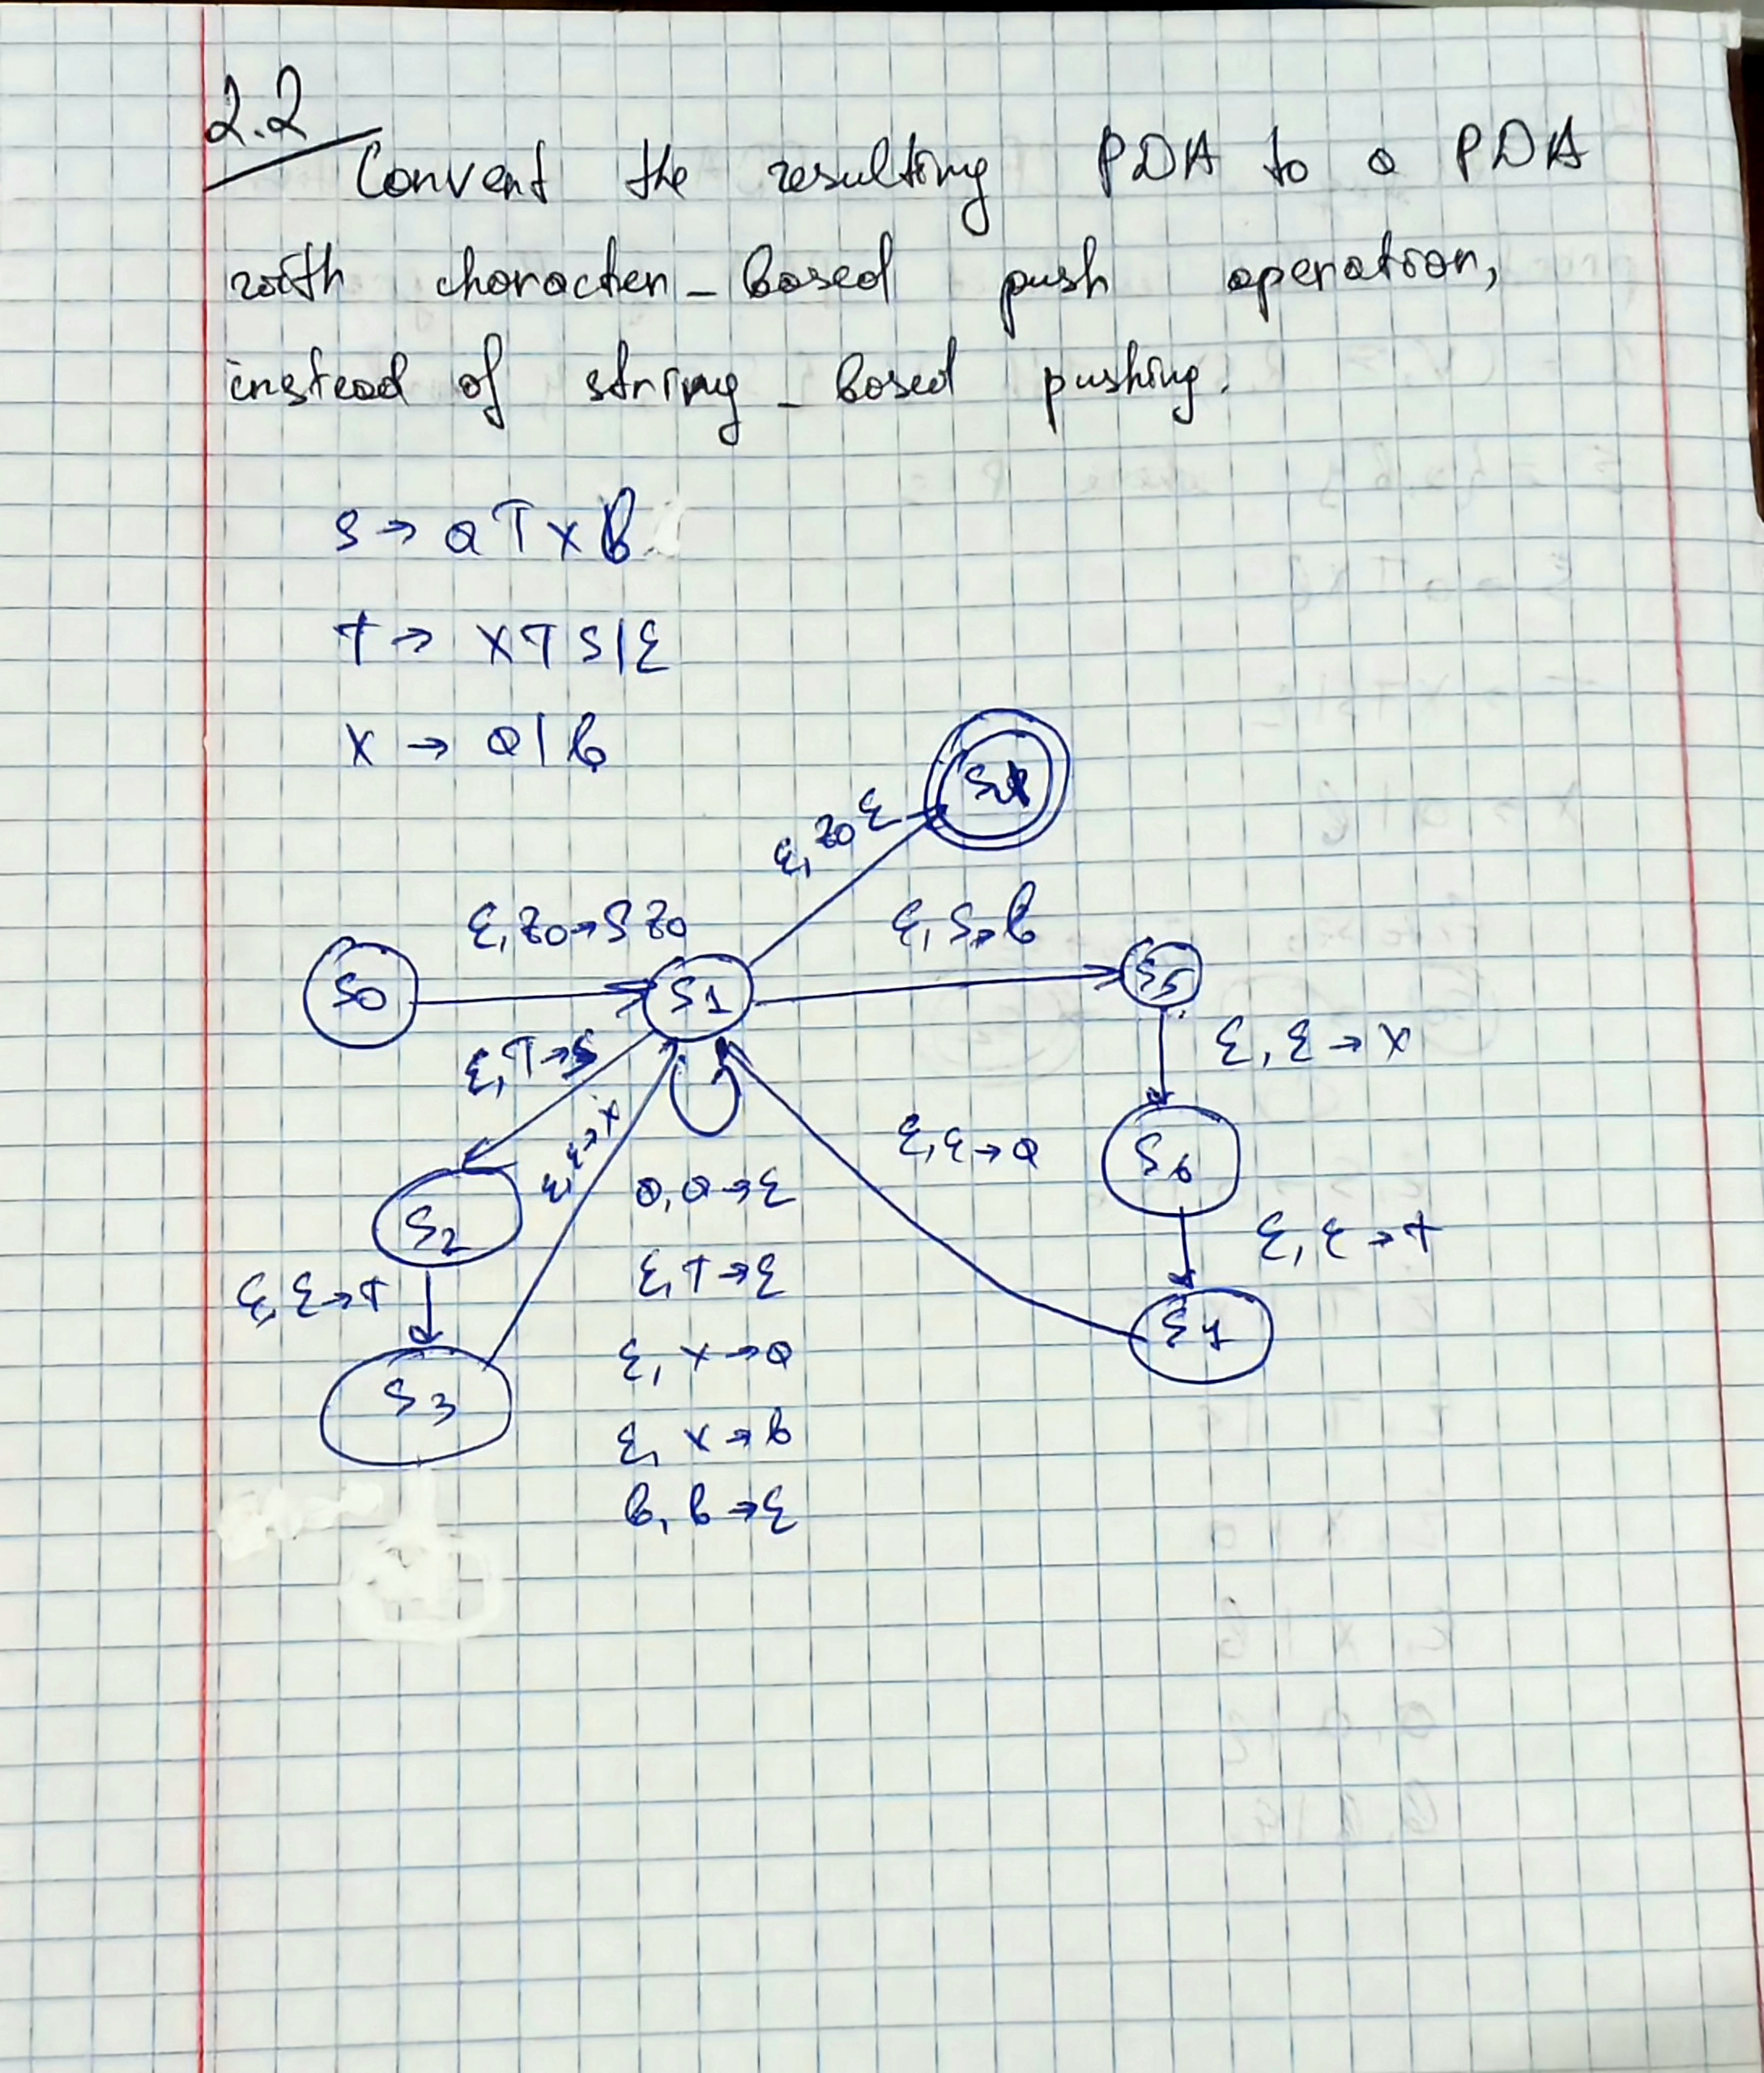 2.2
Convert the resulting PDA to a PDA
with character-based push operation,
instead of string-based pushing.
S → aTXb
T → XTS|ε
X → a|b
S4
ε, z0 ε
ε, z0→Sz0
ε, S→b
S0
S1
S5
ε, T→S
ε, ε→X
ε, ε→X
ε, ε→a
S6
S2
a, a→ε
ε, ε→T
ε, T→ε
ε, ε→T
S7
ε, X→a
S3
ε, X→b
b, b→ε